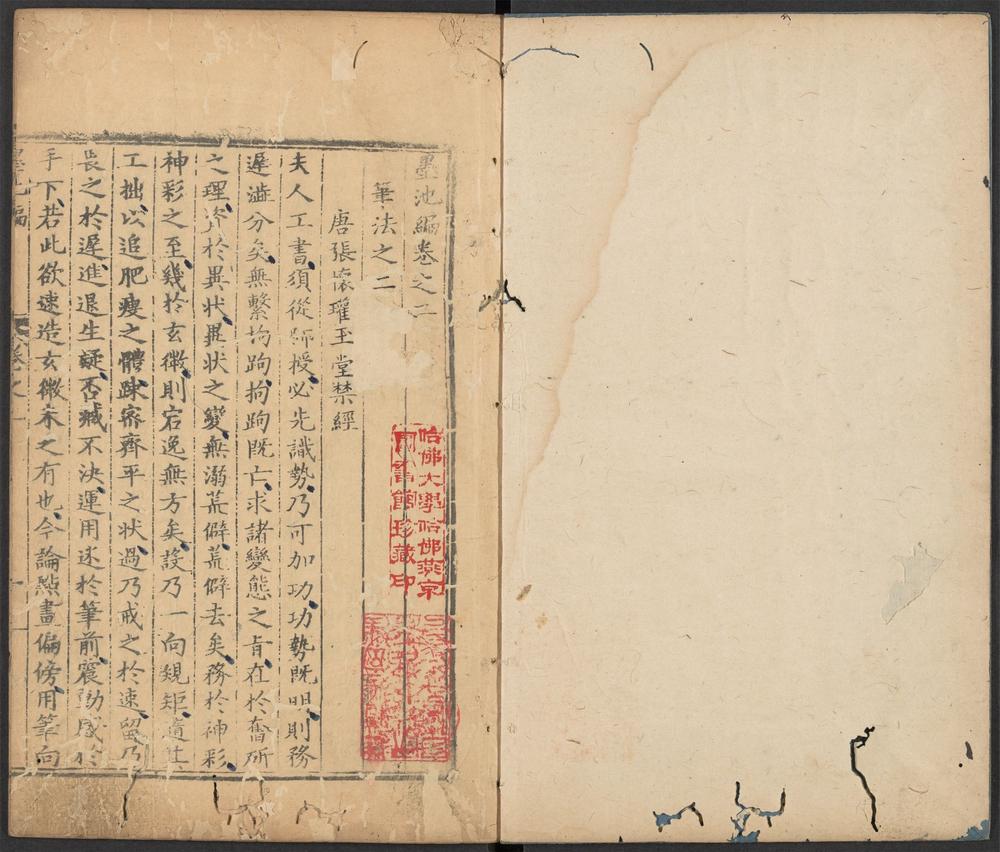 墨池編卷之二
筆法之二
唐張懷瓘玉堂禁經
夫人工書須從師授必先識勢乃可加功功勢既明則務
遲澁分矣無繫拘跔拘跔既亡求諸變態之肯在於奮斫
之理資於異狀異狀之變無溺荒僻荒僻去矣務於神彩
神彩之至幾於玄微則宕逸無方矣設乃一向規矩隨其
工拙以追肥瘦之體踈密齊平之狀過乃戒之於速留乃
畏之於遲進退生疑否臧不決運用迷於筆前震動惑於
手下若此欲速造玄微未之有也今論點畫偏傍用筆向
哈佛大學哈佛燕京
圖書館珍藏印